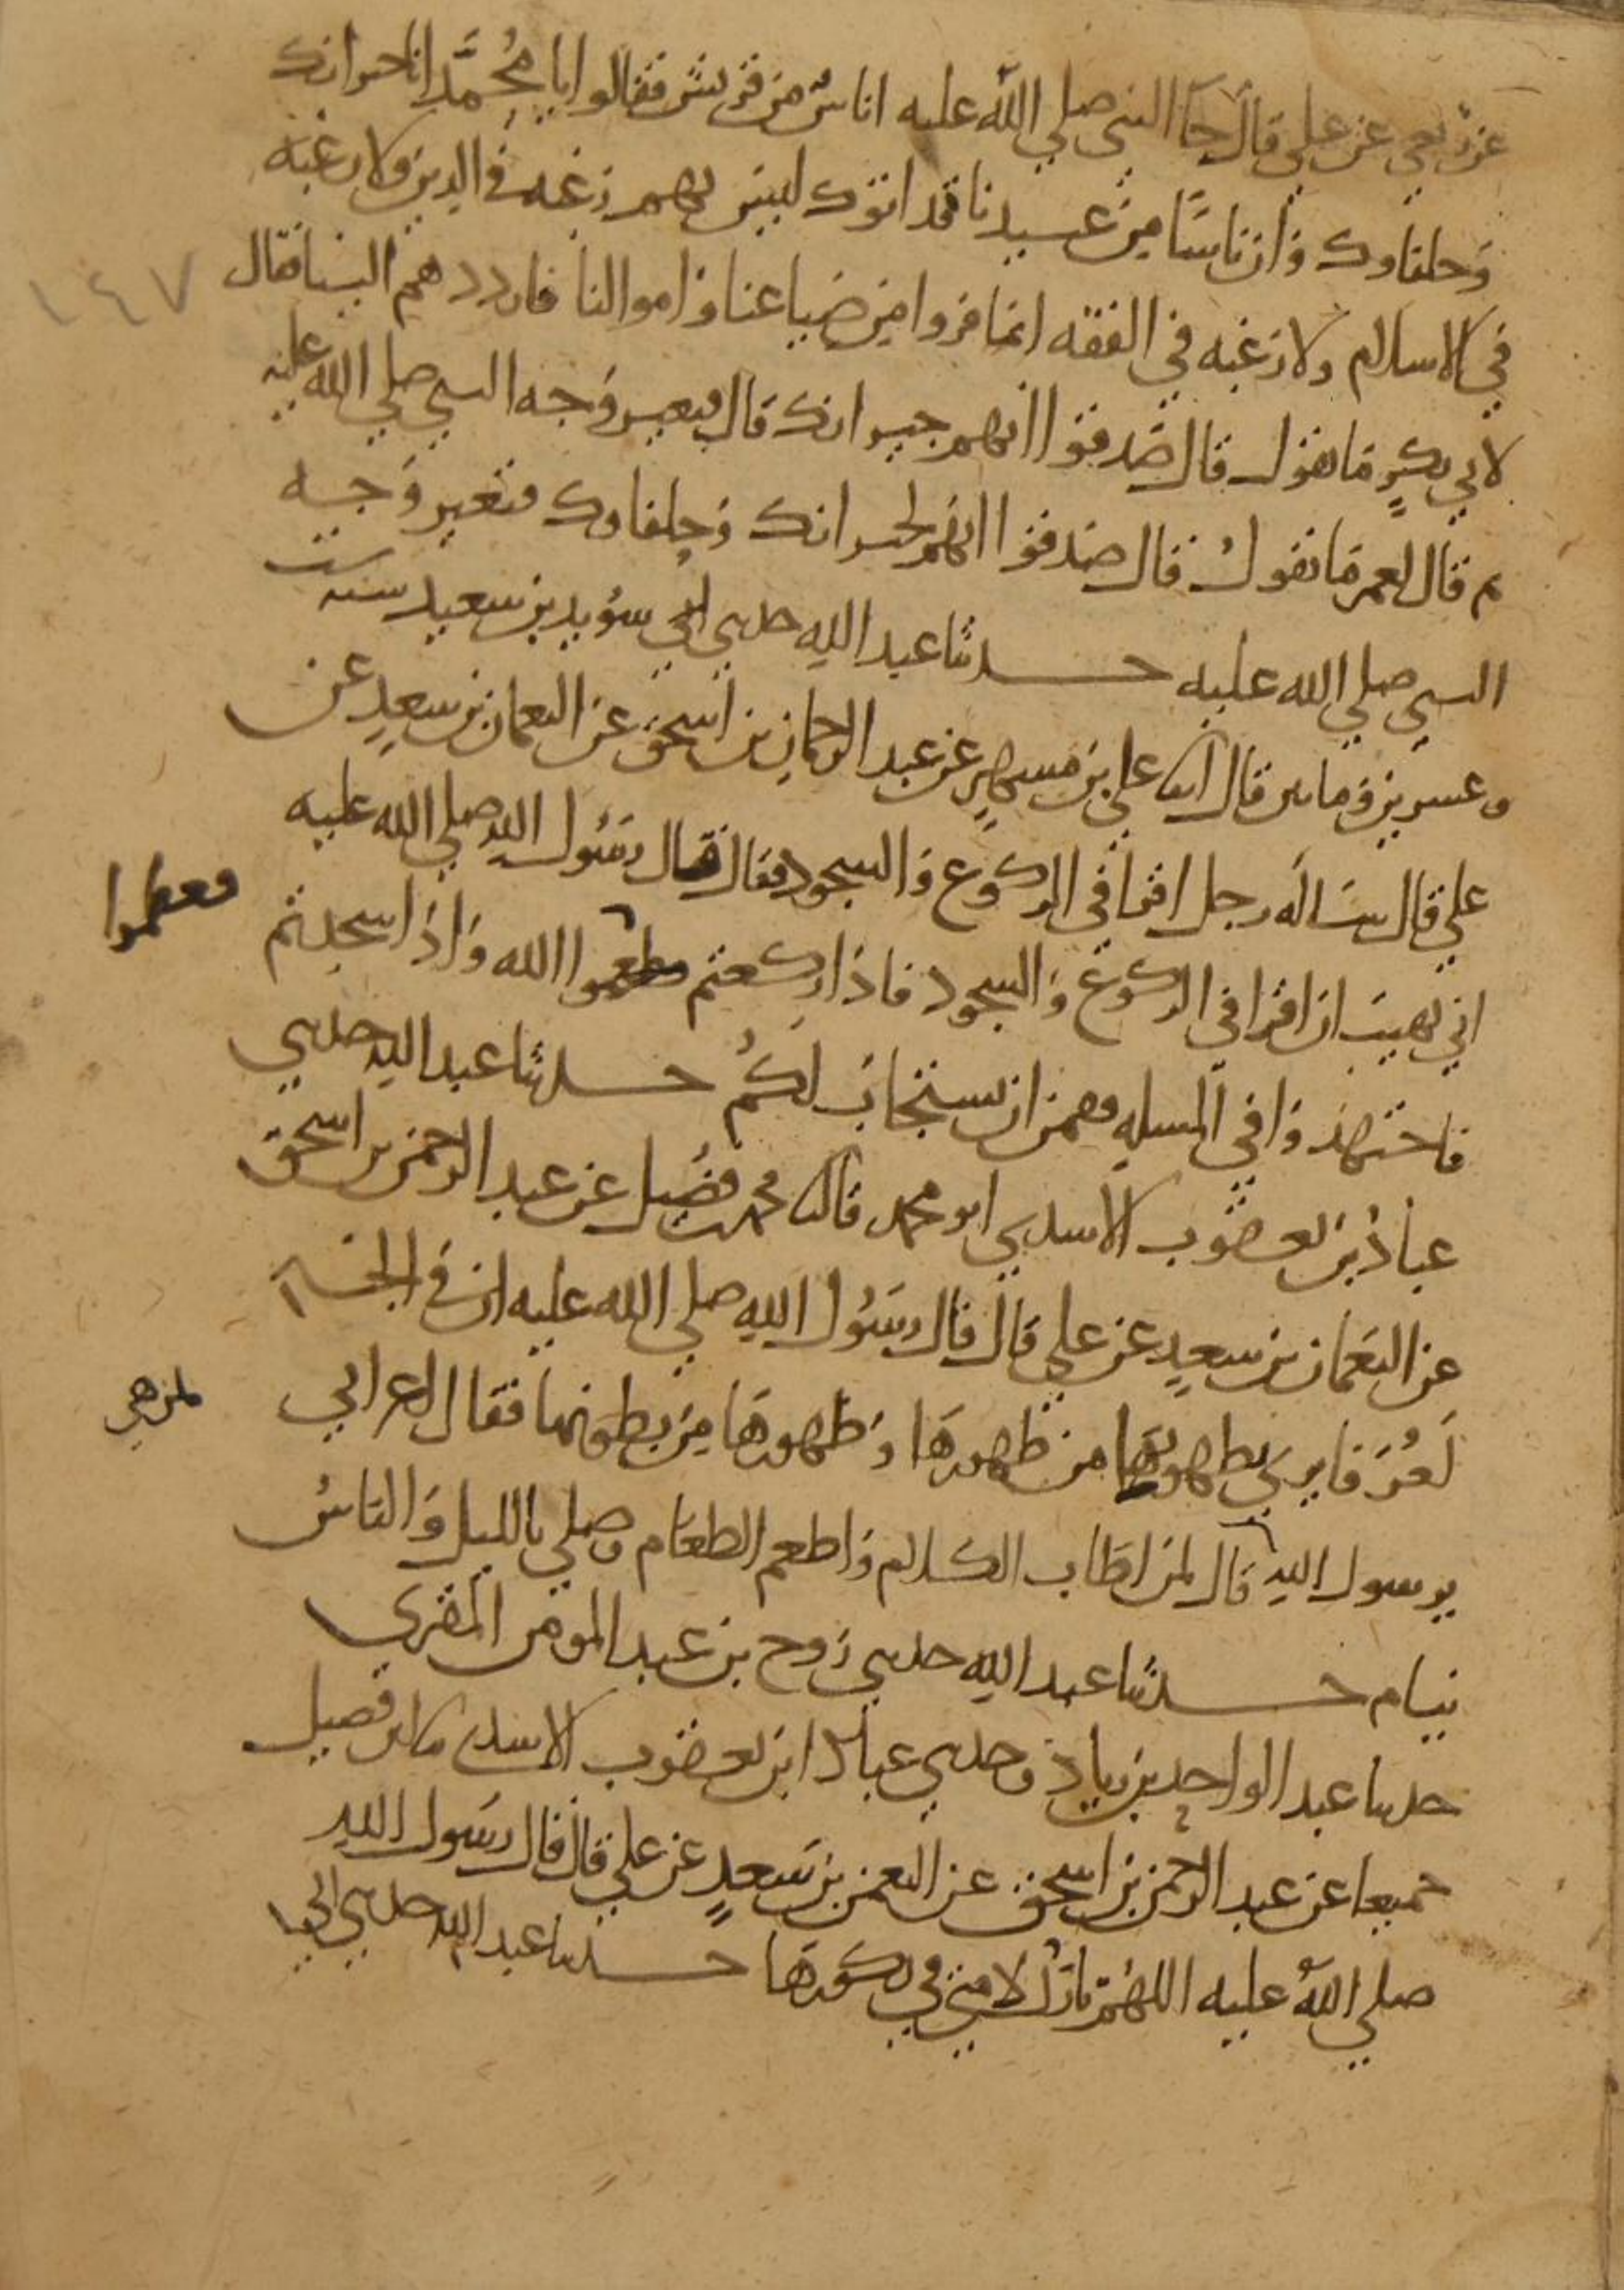 عن ربعي عن علي قال جآ النبي صلي الله عليه اناسٌ من قريش فقالوا يا مُحمَّد انا جيرانك
وَحلفاوك وَان ناسًا من عبيدنا قد اتوك ليس بهم رَغبه في الدين ولا رغبه
في الاسلام ولا رَغبه في الفقه انما فروا من ضياعنا وَاموالنا فارددهم الينا فقال
١٤٧
لابي بكرٍ مَا تقول قال صَدقوا انهم جيرانك قال فتغير وَجه النبي صلي الله عليه
ثم قال لعمر مَا تقولُ قال صَدقوا انهم لجيرانك وَحلفاوك فتغير وَجه
النبي صلي الله عليه حدثنا عبد الله حدثني سُويد بن سعيد سنه ست
وعشرين وَماتين قال انا علي بن مُسهرٍ عن عبد الرحمان بن اسحق عن النعمان بن سعيدٍ عن
علي قال سَاله رجل اقرا في الركوع وَالسجود فقال قال رسُول الله صلي الله عليه
اني نهيت ان اقرا في الركوع وَالسجود فاذا ركعتم فعظموا الله وَاذا سجدتم
فعظموا
فاجتهدوَا في المسله فقمن ان يستجابَ لكمُ حدثنا عبد الله حدثني
عبادُ بن يعقوب الاسدي ابو محمد قال ثنا محمد بن فضيل عن عبد الرحمن بن اسحق
عن النعمان بن سعيدٍ عن علي قال قال رسُول الله صلي الله عليه ان في الجنه
لَغُرَفا يري بطونها من ظهورهَا وَظهورها من بطونها فقال اعرابي
يرسول الله قال لمن اطَاب الكلام وَاطعم الطعَام وصلي بالليل وَالناسُ
لمن هي
نيام حدثنا عبد الله حدثني رَوح بن عبد المومن المقري
حدثنا عبد الواحد بن زياد وحدثني عباد ابن يعقوب الاسدي نا ابن فضيل
جميعا عن عبد الرحمن بن اسحق عن النعمن بن سَعدٍ عن علي قال قال رسُول الله
صلي اللهُ عليه اللهُم بارك لامتي في بكورهَا حدثنا عبد الله حدثني ابي نا